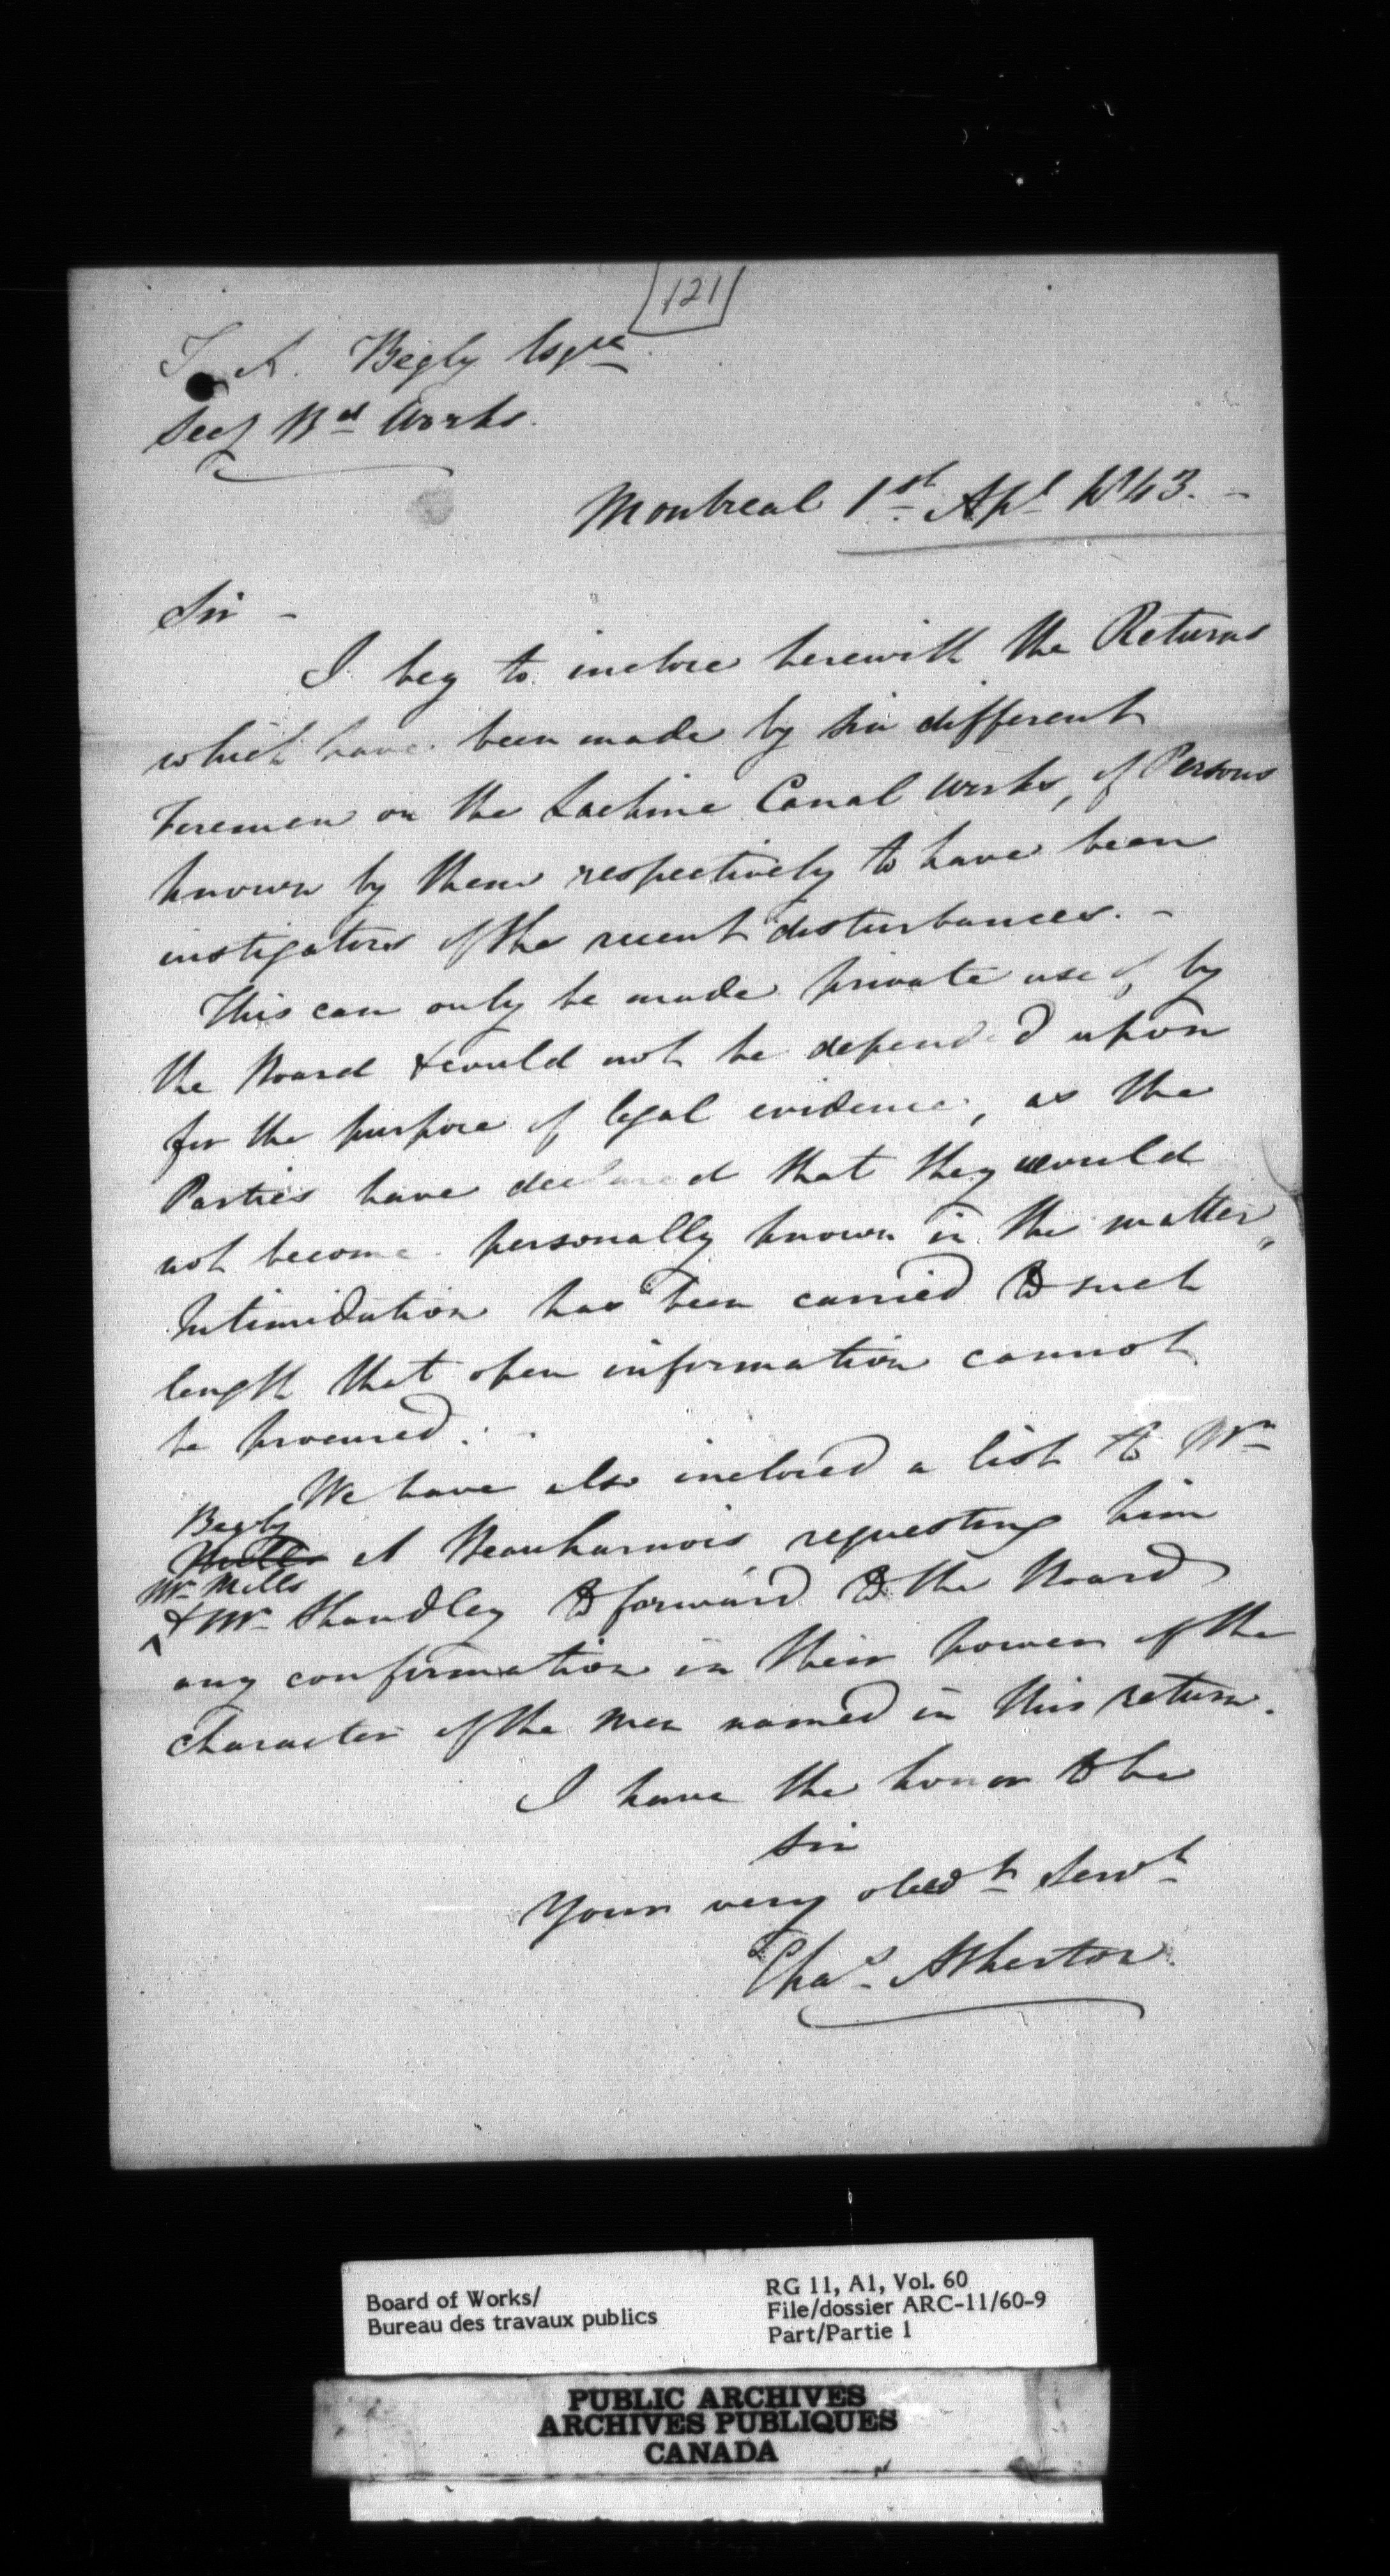 121
T. A. Begly Esqre
Secy Bd Works.
Montreal 1st Apl 1843. -
Sir -
I beg to inclose herewith the Returns
which have been made by six different
Foremen on the Lachine Canal Works, of Persons
known by them respectively to have been
instigators of the recent disturbances. -
This can only be made private use of, by
the Board & could not be depended upon
for the purpose of legal evidence, as the
Parties have declared that they would
not become personally known in the matter,
Intimidation has been carried to such
length that open information cannot
be procured.
We have also inclosed a list to Mr
Begly
at Beauharnois, requesting him
Mr Mills
& Mr Shandley to forward to the Board
any confirmation in their power of the
character of the men named in this return.
I have the honor to be
Sir
Your very obedt Servt
Chas Atherton.
Board of Works/
Bureau des travaux publics
RG 11, A1, Vol. 60
File/dossier ARC-11/60-9
Part/Partie 1
PUBLIC ARCHIVES
ARCHIVES PUBLIQUES
CANADA